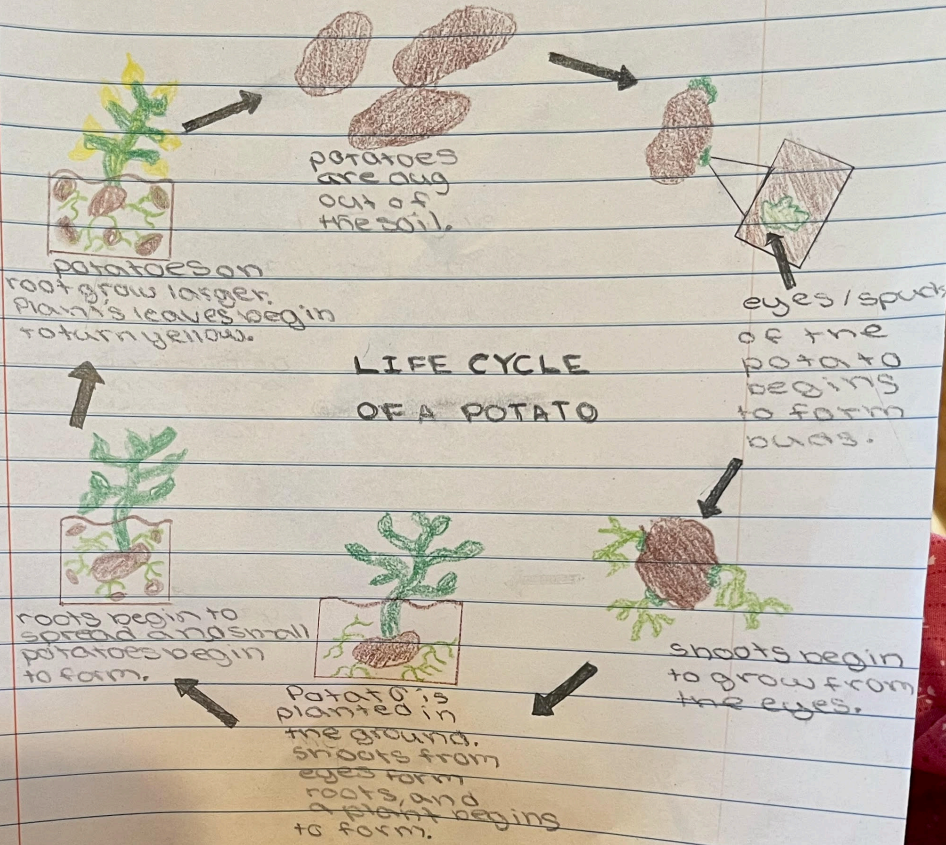 LIFE CYCLE
OF A POTATO
potatoes
are dug
out of
the soil.
eyes/spuds
of the
potato
begins
to form
buds.
shoots begin
to grow from
the eyes.
Potato is
planted in
the ground.
shoots from
eyes form
roots, and
a plant begins
to form.
roots begin to
spread and small
potatoes begin
to form.
potatoes on
root grow larger.
Plant's leaves begin
to turn yellow.